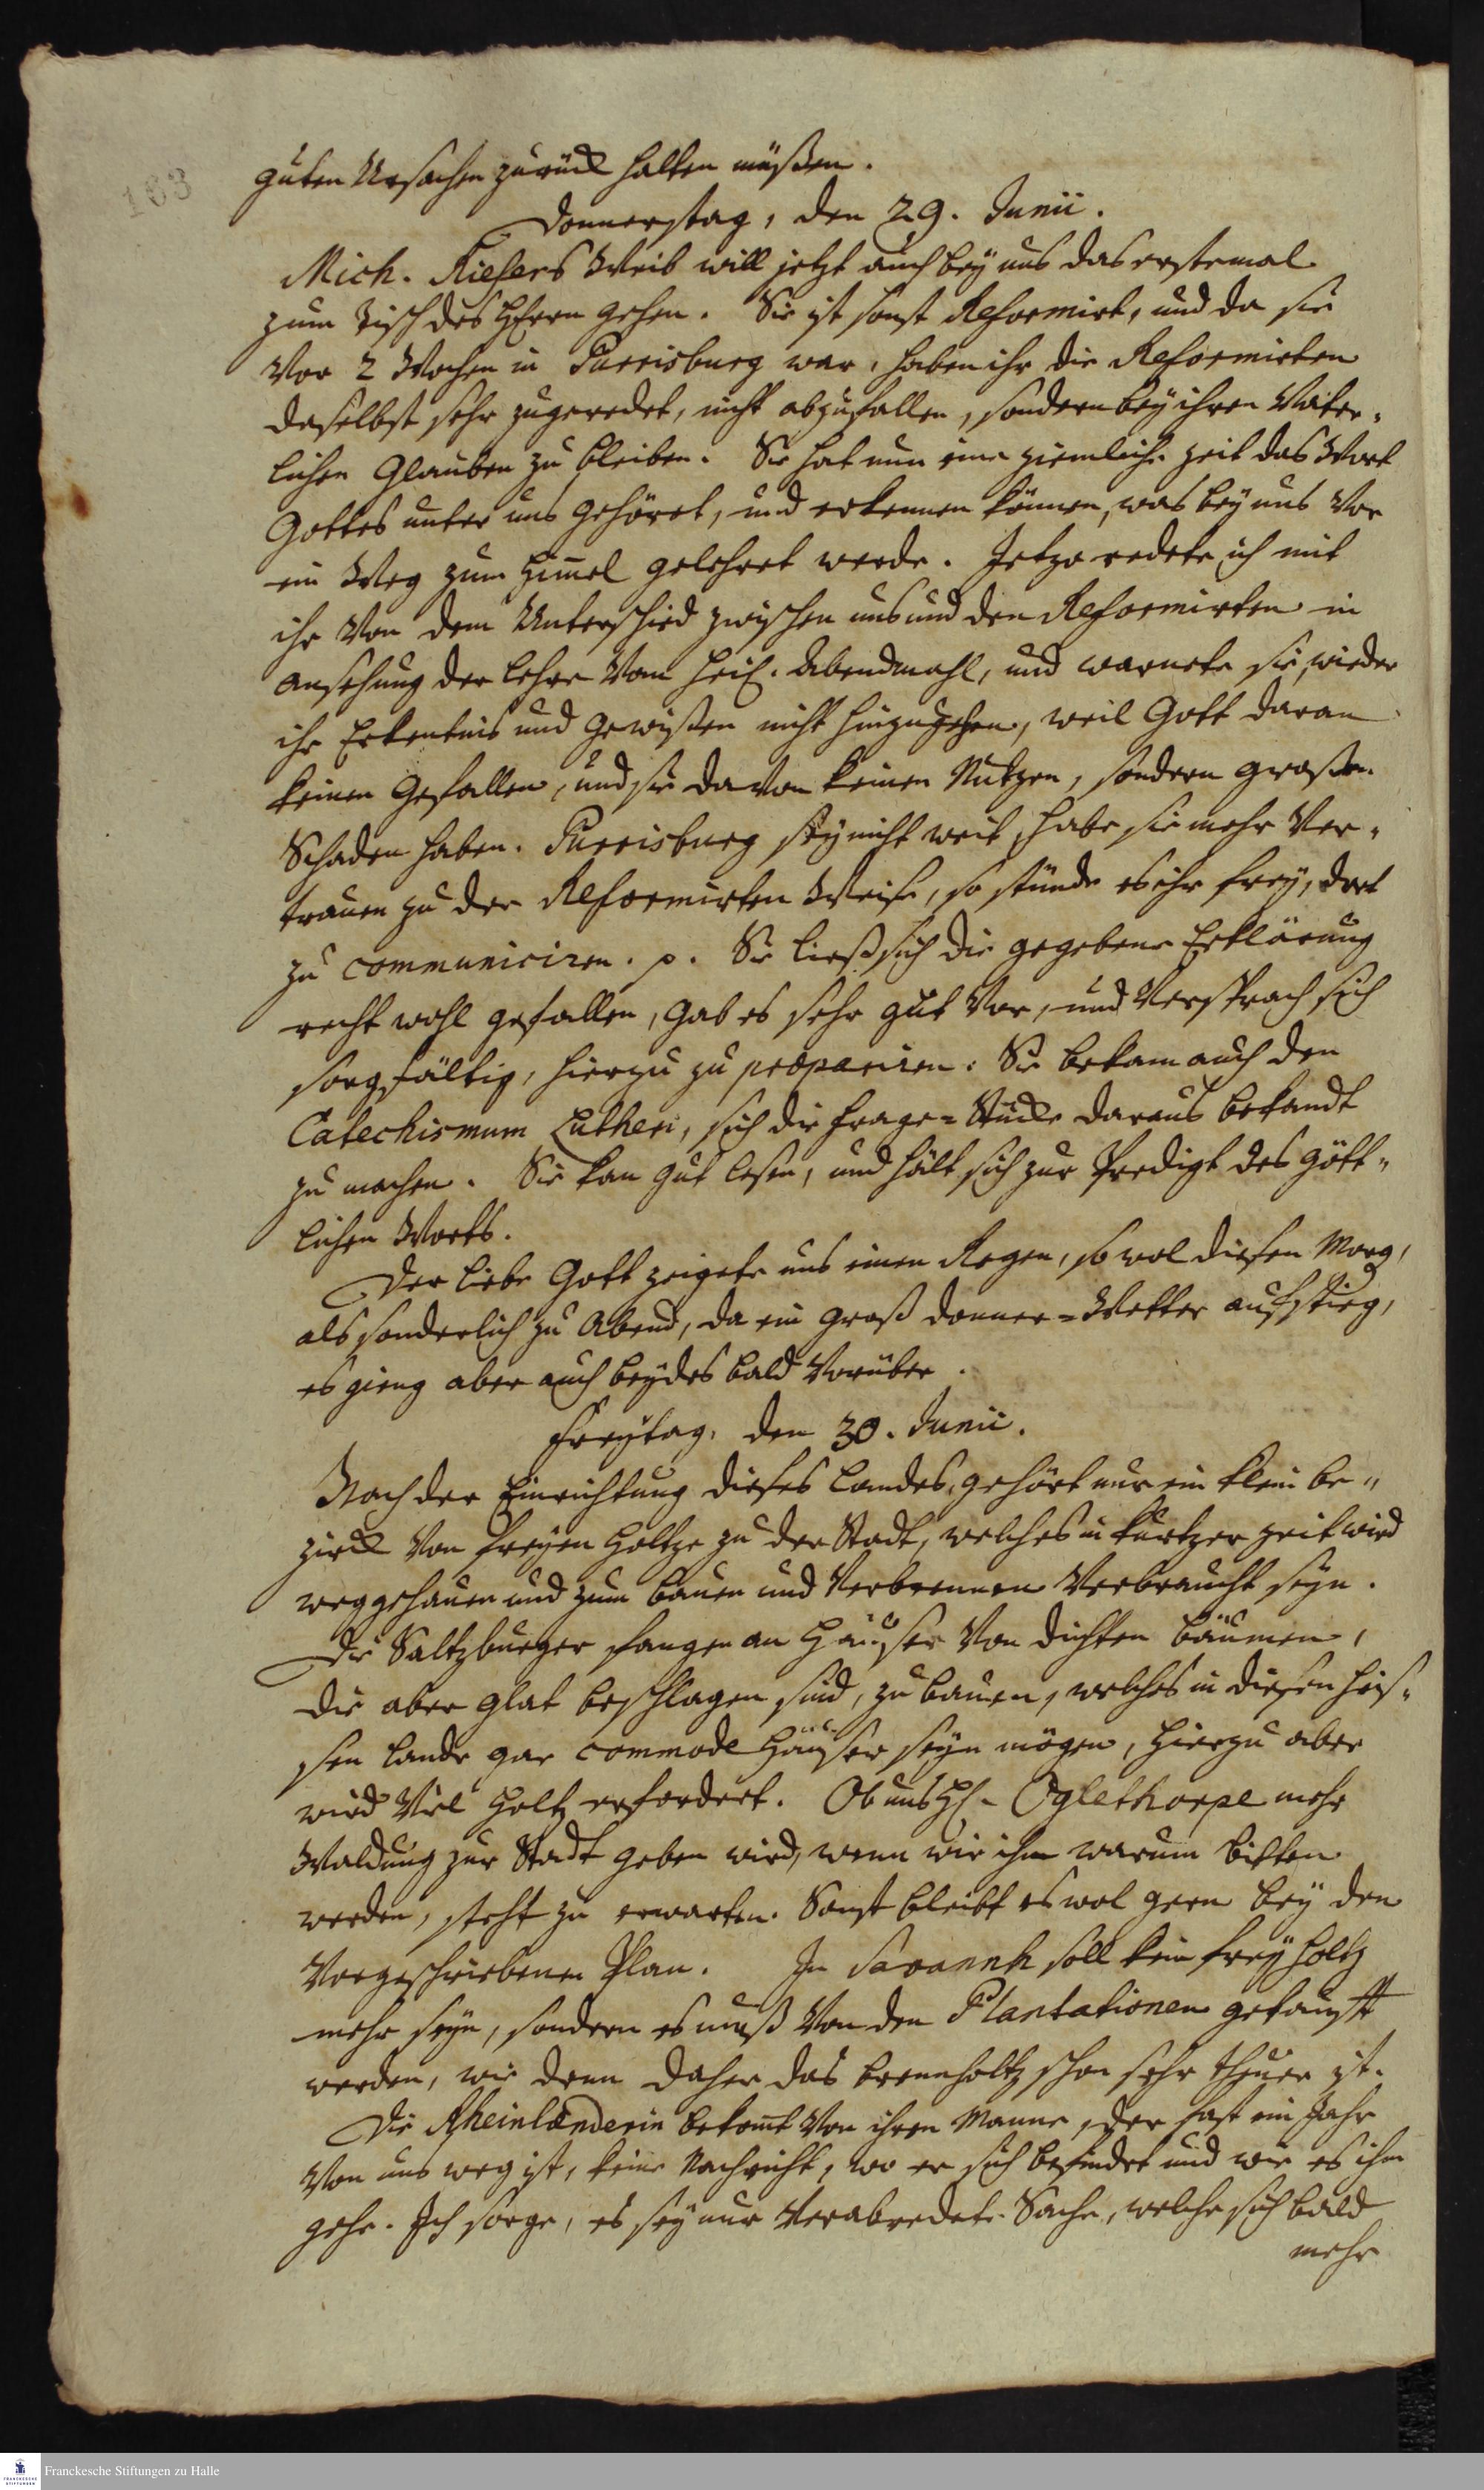 163
guten Ursachen zurück halten müßen.
Donnerstag, den 29. Junii.
Mich. Riesers Weib will jetzt auch bey uns das erstemal
zum Tisch des HErrn gehen. Sie ist sonst Reformirt, und da sie
vor 2 Wochen in Purrisburg war, haben ihr die Reformirten
daselbst sehr zugeredet, nicht abzufallen, sondern bey ihren Väter-
lichen Glauben zu bleiben. Sie hat nun eine ziemliche Zeit das Wort
Gottes unter uns gehöret, und erkennen können, was bey uns vor
ein Weg zum Himel gelehret werde. Jetzo redete ich mit
ihr von dem Unterschied zwischen uns und den Reformirten in
Ansehung der Lehre vom Heil. Abendmahl, und warnete sie, wieder
ihr Erkentnis und Gewißen nicht hinzugehen, weil Gott daran
keinen Gefallen, und sie davon keinen Nutzen, sondern großen
Schaden haben. Purrisburg sey nicht weit, habe sie mehr Ver-
trauen zu der Reformirten Weise, so stünde es ihr frey, dort
zu communiciren. p. Sie ließ sich die gegebene Erklärung
recht wohl gefallen, gab es sehr gut vor, und versprach sich
sorgfältig, hierzu zu præpariren: Sie bekam auch den
Catechismum Lutheri, sich die Frage-Stücke daraus bekandt
zu machen. Sie kan gut lesen, und hält sich zur Predigt des Gött-
lichen Worts.
Der liebe Gott zeigete uns einen Regen, so wol diesen Morg,
als sonderlich zu Abend, da ein groß Donner-Wetter aufstieg,
es gieng aber auch beydes bald vorüber.
Freytag, den 30. Junii.
Nach der Einrichtung dieses Landes, gehört nur ein klein Be-
zirck von freyen Holtze zu der Stadt, welches in kurtzer Zeit wird
weggehauen und zum bauen und verbrennen verbraucht seyn.
Die Saltzburger fangen an Häuser von dichten Bäumen,
die aber glat beschlagen sind, zu bauen, welches in diesen heis-
sen Lande gar commode Häuser seyn mögen, hierzu aber
wird viel Holtz erfordert. Ob uns H. Oglethorpe mehr
Waldung zur Stadt geben wird, wenn wir ihn warum bitten
werden, steht zu erwarten. Sonst bleibt es wol gern bey den
Vorgeschriebenen Plan. In Savannh soll kein frey Holtz
mehr seyn, sondern es muß von den Plantationen gekaufft
werden, wie denn daher das brennholtz schon sehr theuer ist.
Die Rheinlænderin bekomt von ihren Manne, der fast ein Jahr
von uns weg ist, keine Nachricht, wo er sich befindet und wie es ihm
gehe. Ich sorge, es sey nur verabredete Sache, welche sich bald
mehr
Franckesche Stiftungen zu Halle